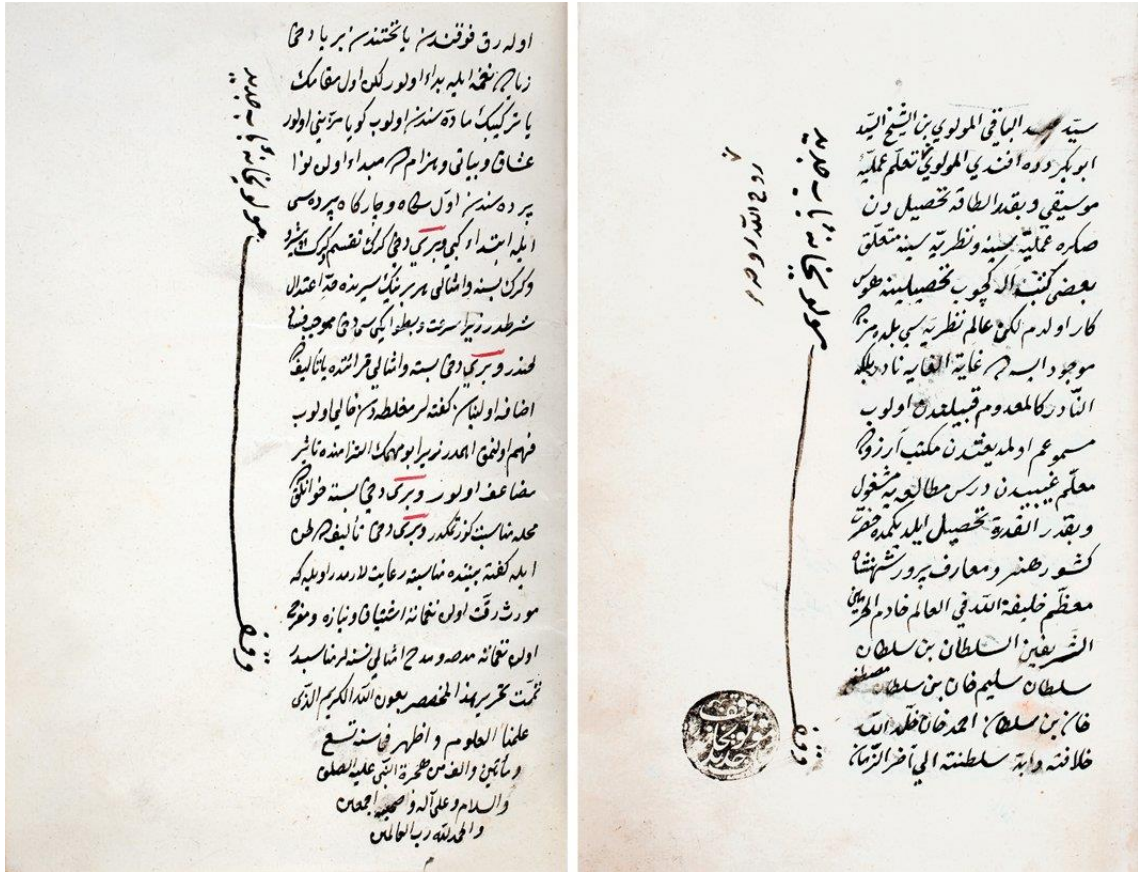 سيّد عبد الباقي المولوي بن الشيخ السيّد
ابو بكر دده افندي المولوي تعلّم عمليّه
موسيقي و بقدر الطاقه تحصيل دن
صكره عمليّه سينه و نظريّه سينه متعلّق
بعضى كتبه ال كچوب تحصيلينه هوس
كار اولدم لكن عالم نظريّه سى بلده مزده
موجود ايسه ده غاية الغايه نادر بلكه
النّادر كالمعدوم قبيلندن اولوب
مسموعم اولمديغندن مكتب آرزوده
معلّم غيبيدن درس مطالعه يه مشغول
و بقدر القدرة تحصيل ايلديكمده
كشور هنر و معارف پرور شهنشاه
معظّم خليفة اللّه في العالم خادم الحرمين
الشريفين السلطان بن سلطان
سلطان سليم خان بن سلطان مصطفى
خان بن سلطان احمد خان خلّد اللّه
خلافته و ابّد سلطنته الي آخر الزّمان
وقف مولويخانهٔ باب جديد
روّح اللّه روحه
وقف مولويخانهٔ باب جديد
اوله رق فوقندن يا تحتندن بر يا دخى
زياده نغمه ايله بداء اولور لكن اول مقامك
يا تركيبك ماده سندن اولوب كويا مزيّنى اولور
عشاق و بياتى و هزام ده مبداء اولن نوا
پرده سندن اوّل سكاه و چاركاه پرده سى
ايله ابتداء كبى و برى دخى كرك تقسيم كرك پيشرو
و كرك بسته و امثالى هر برينك سيرنده حدّ اعتدال
شرطدر زيرا سرعت و بطؤ ايكى سى دخى موجب
لحندر و برى دخى بسته و امثالى قرائتنده يا تأليفده
اضافه اولنان كفته لر مغلطه دن خالى اولوب
فهم اولنمق اهمدر زيرا بو مهمك التزامنده تاثير
مضاعف اولور و برى دخى بسته خوانلقده
محله مناسبت كوزتمكدر و برى دخى تأليفده لحن
ايله كفته بيننده مناسبته رعايت لازمدر اويله كه
مورث رقّت اولن نغماته اشتياق و نيازه و مفرح
اولن نغماته مدحه و مدح امثالي نسنه لر مناسبدر
تمّت تحرير هذا المختصر بعون اللّه الكريم الذّى
علمنا العلوم و اظهر في سنه تسع
و مأتين و الف من هجرة النّبي عليه الصلوة
و السلام و على آله و صحبه اجمعين
و الحمد للّه رب العالمين
م
وقف مولويخانهٔ باب جديد